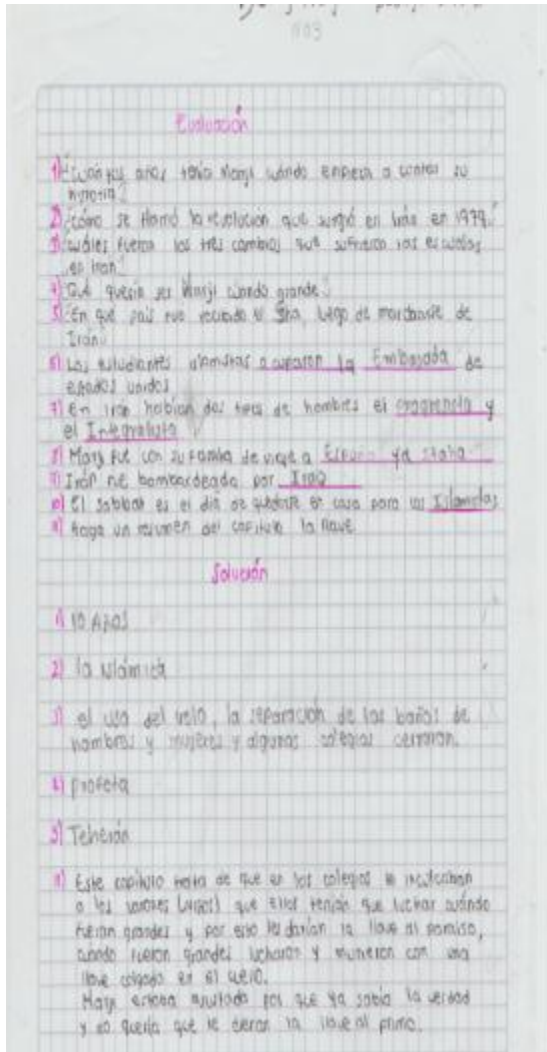 Evaluación
1) ¿Cuántos años tenía Marji cuándo empieza a contar su
historia?
2) ¿cómo se llamó la revolución que surgió en Irán en 1979?
3) ¿cuáles fueron los tres cambios que sufrieron las escuelas
en Iran?
4) Qué quería ser Marji cuando grande?
5) En qué país fue recibido el Sha, luego de marcharse de
Irán?
6) Los estudiantes islamistas ocuparon la Embajada de
estados unidos
7) En Irán habían dos tipos de hombres el progresista y
el Integralista
8) Marji fue con su familia de viaje a España Italia
9) Irán fue bombardeada por Iraq
10) El sabbat es el día de quedarse en casa para los Islamistas
11) Haga un resumen del capítulo la llave
Solución
1) 10 Años
2) la Islámica
3) el uso del velo, la separación de los baños de
hombres y mujeres y algunos colegios cerraron.
4) profeta
5) Teherán
11) Este capítulo trata de que en los colegios le inculcaban
a los varones que ellos tenían que luchar cuándo
fueran grandes y por esto les darían la llave al paraíso,
cuando fueron grandes lucharon y murieron con una
llave colgada en el
Marji estaba por que ya sabía la verdad
y no quería que le dieran la llave al primo.